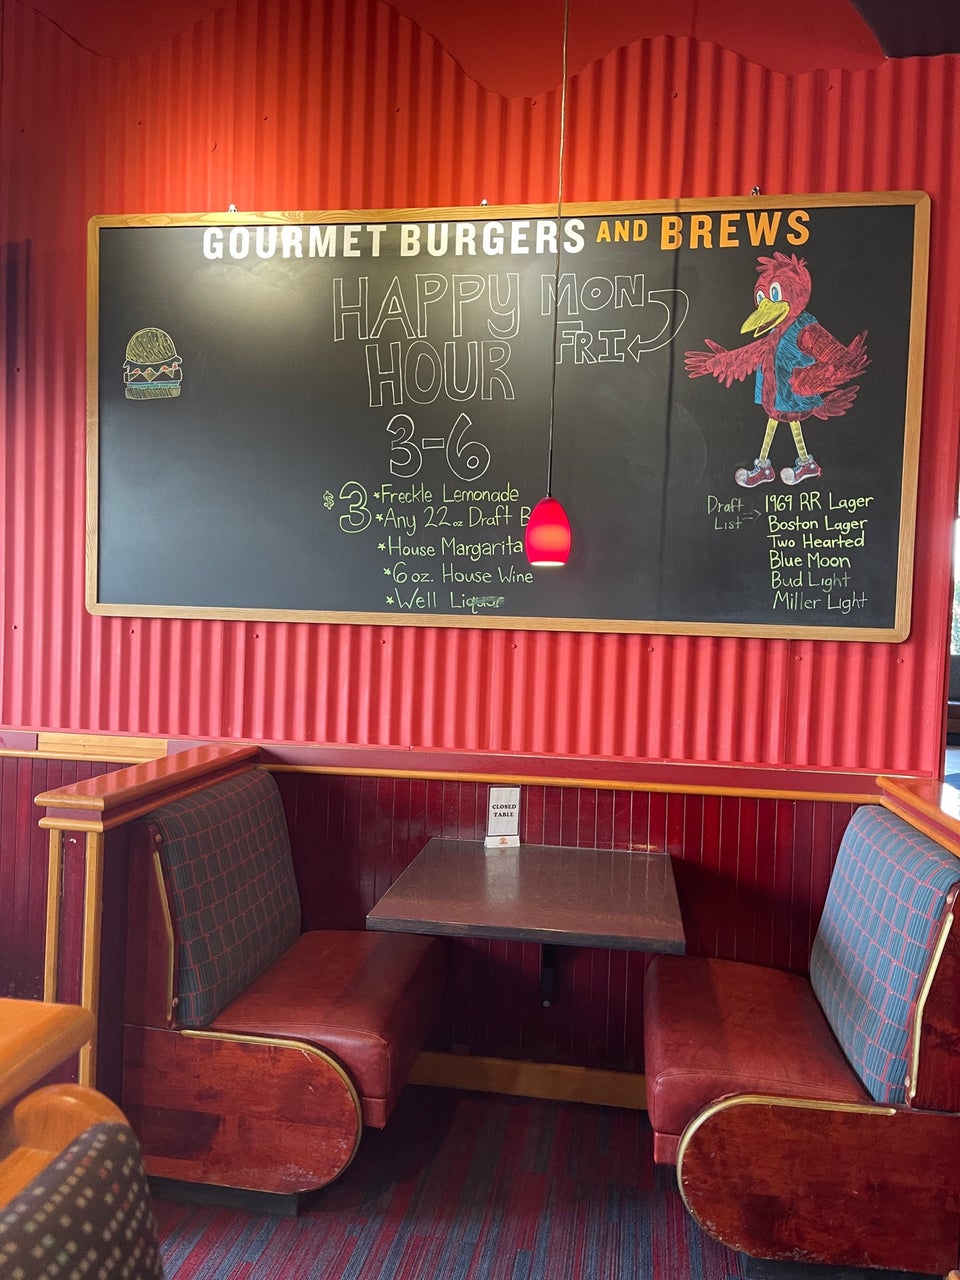 GOURMET BURGERS AND BREWS
HAPPY HOUR
MON
FRI
3-6
$3 *Freckle Lemonade
*Any 22oz Draft
*House Margarita
*6oz. House Wine
*Well Liquor
Draft List
1969 RR Lager
Boston Lager
Two Hearted
Blue Moon
Bud Light
Miller Light
CLOSED
TABLE